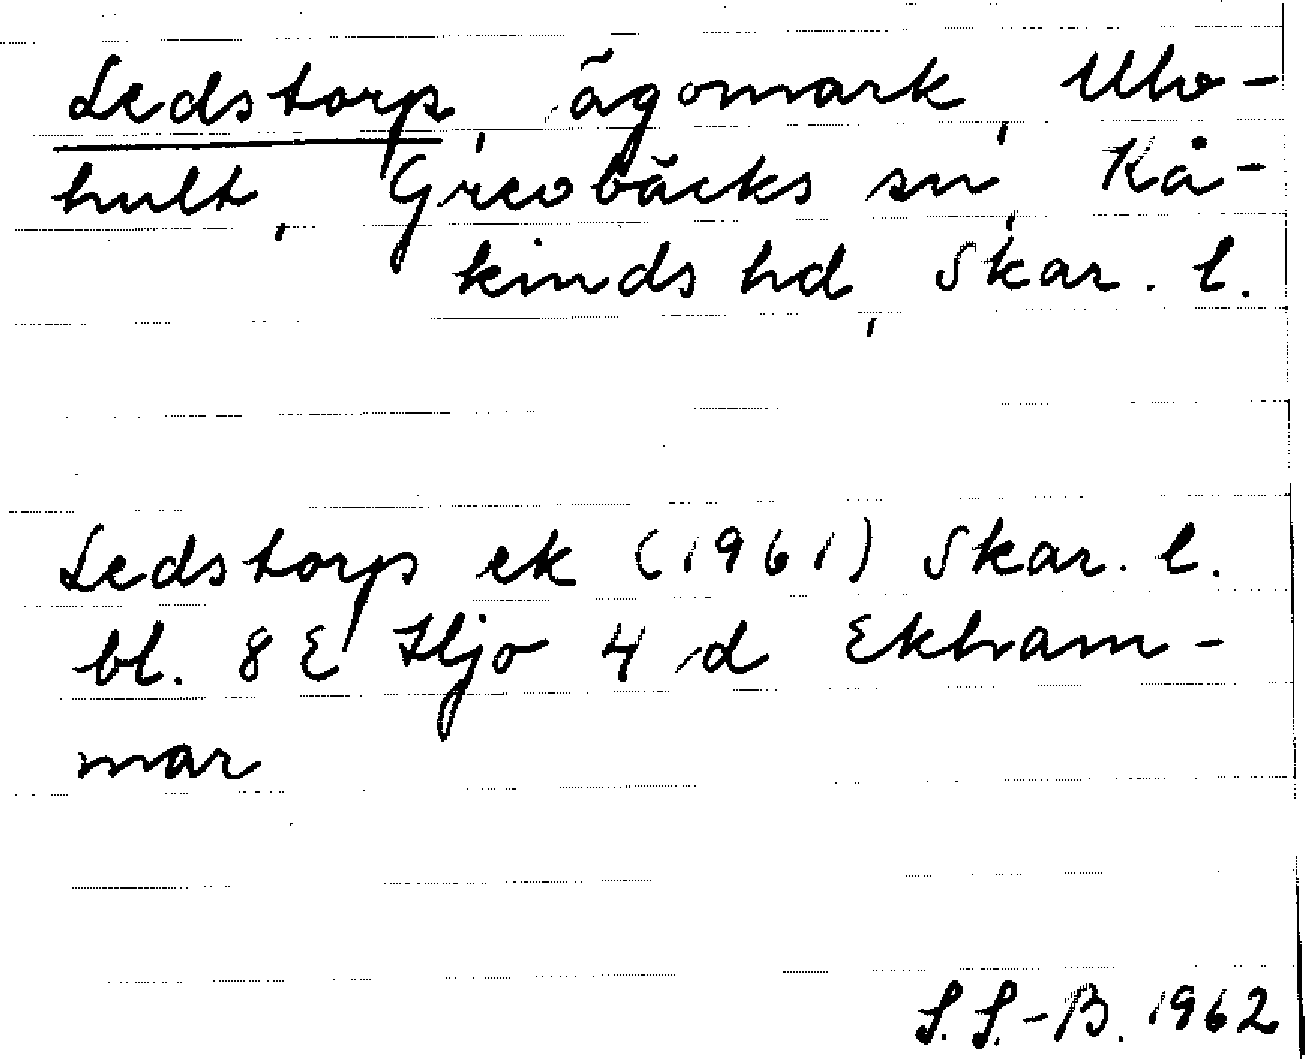 Ledstorp, ägomark, Ulv-
hult, Grevbäcks sn, Kå-
kinds hd, Skar. l.
Ledstorp ek (1961) Skar. l.
bl. 8 E Hjo 4 d Ekham-
mar
S. S.-B. 1962